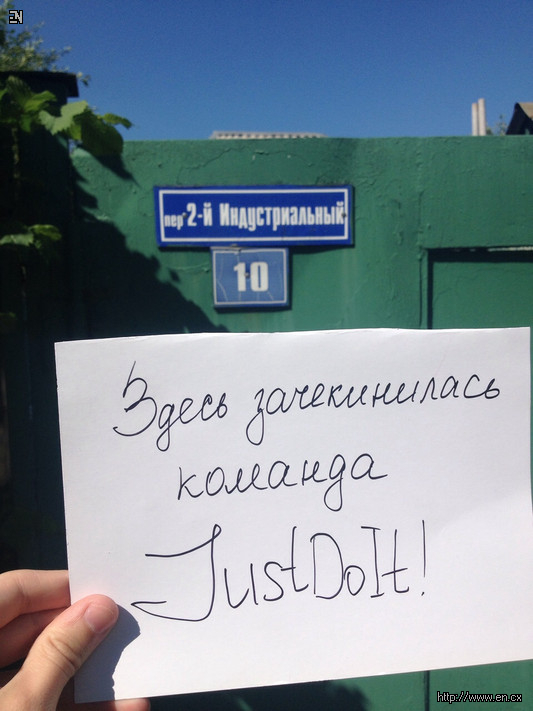 EN
пер. 2-й Индустриальный
10
Здесь зачекинилась
команда
JustDoIt!
http://www.en.cx